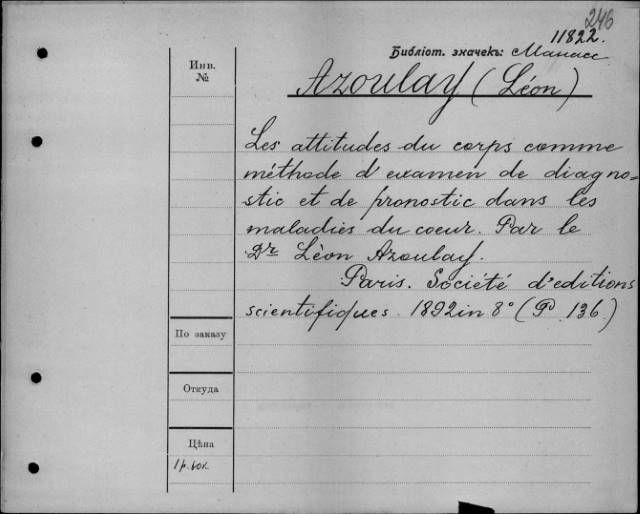 246
11822.
Библіот. значекъ: Манасс
Инв.
№
Azoulay (Léon)
Les attitudes du corps comme
méthode d'examen de diagno=
stic et de pronostic dans les
maladies du coeur. Par le
Dr Léon Azoulay.
Paris. Société d'editions
scientifiques. 1892 in 8° (P. 136.)
По заказу
Откуда
Цѣна
1 р. 60 к.